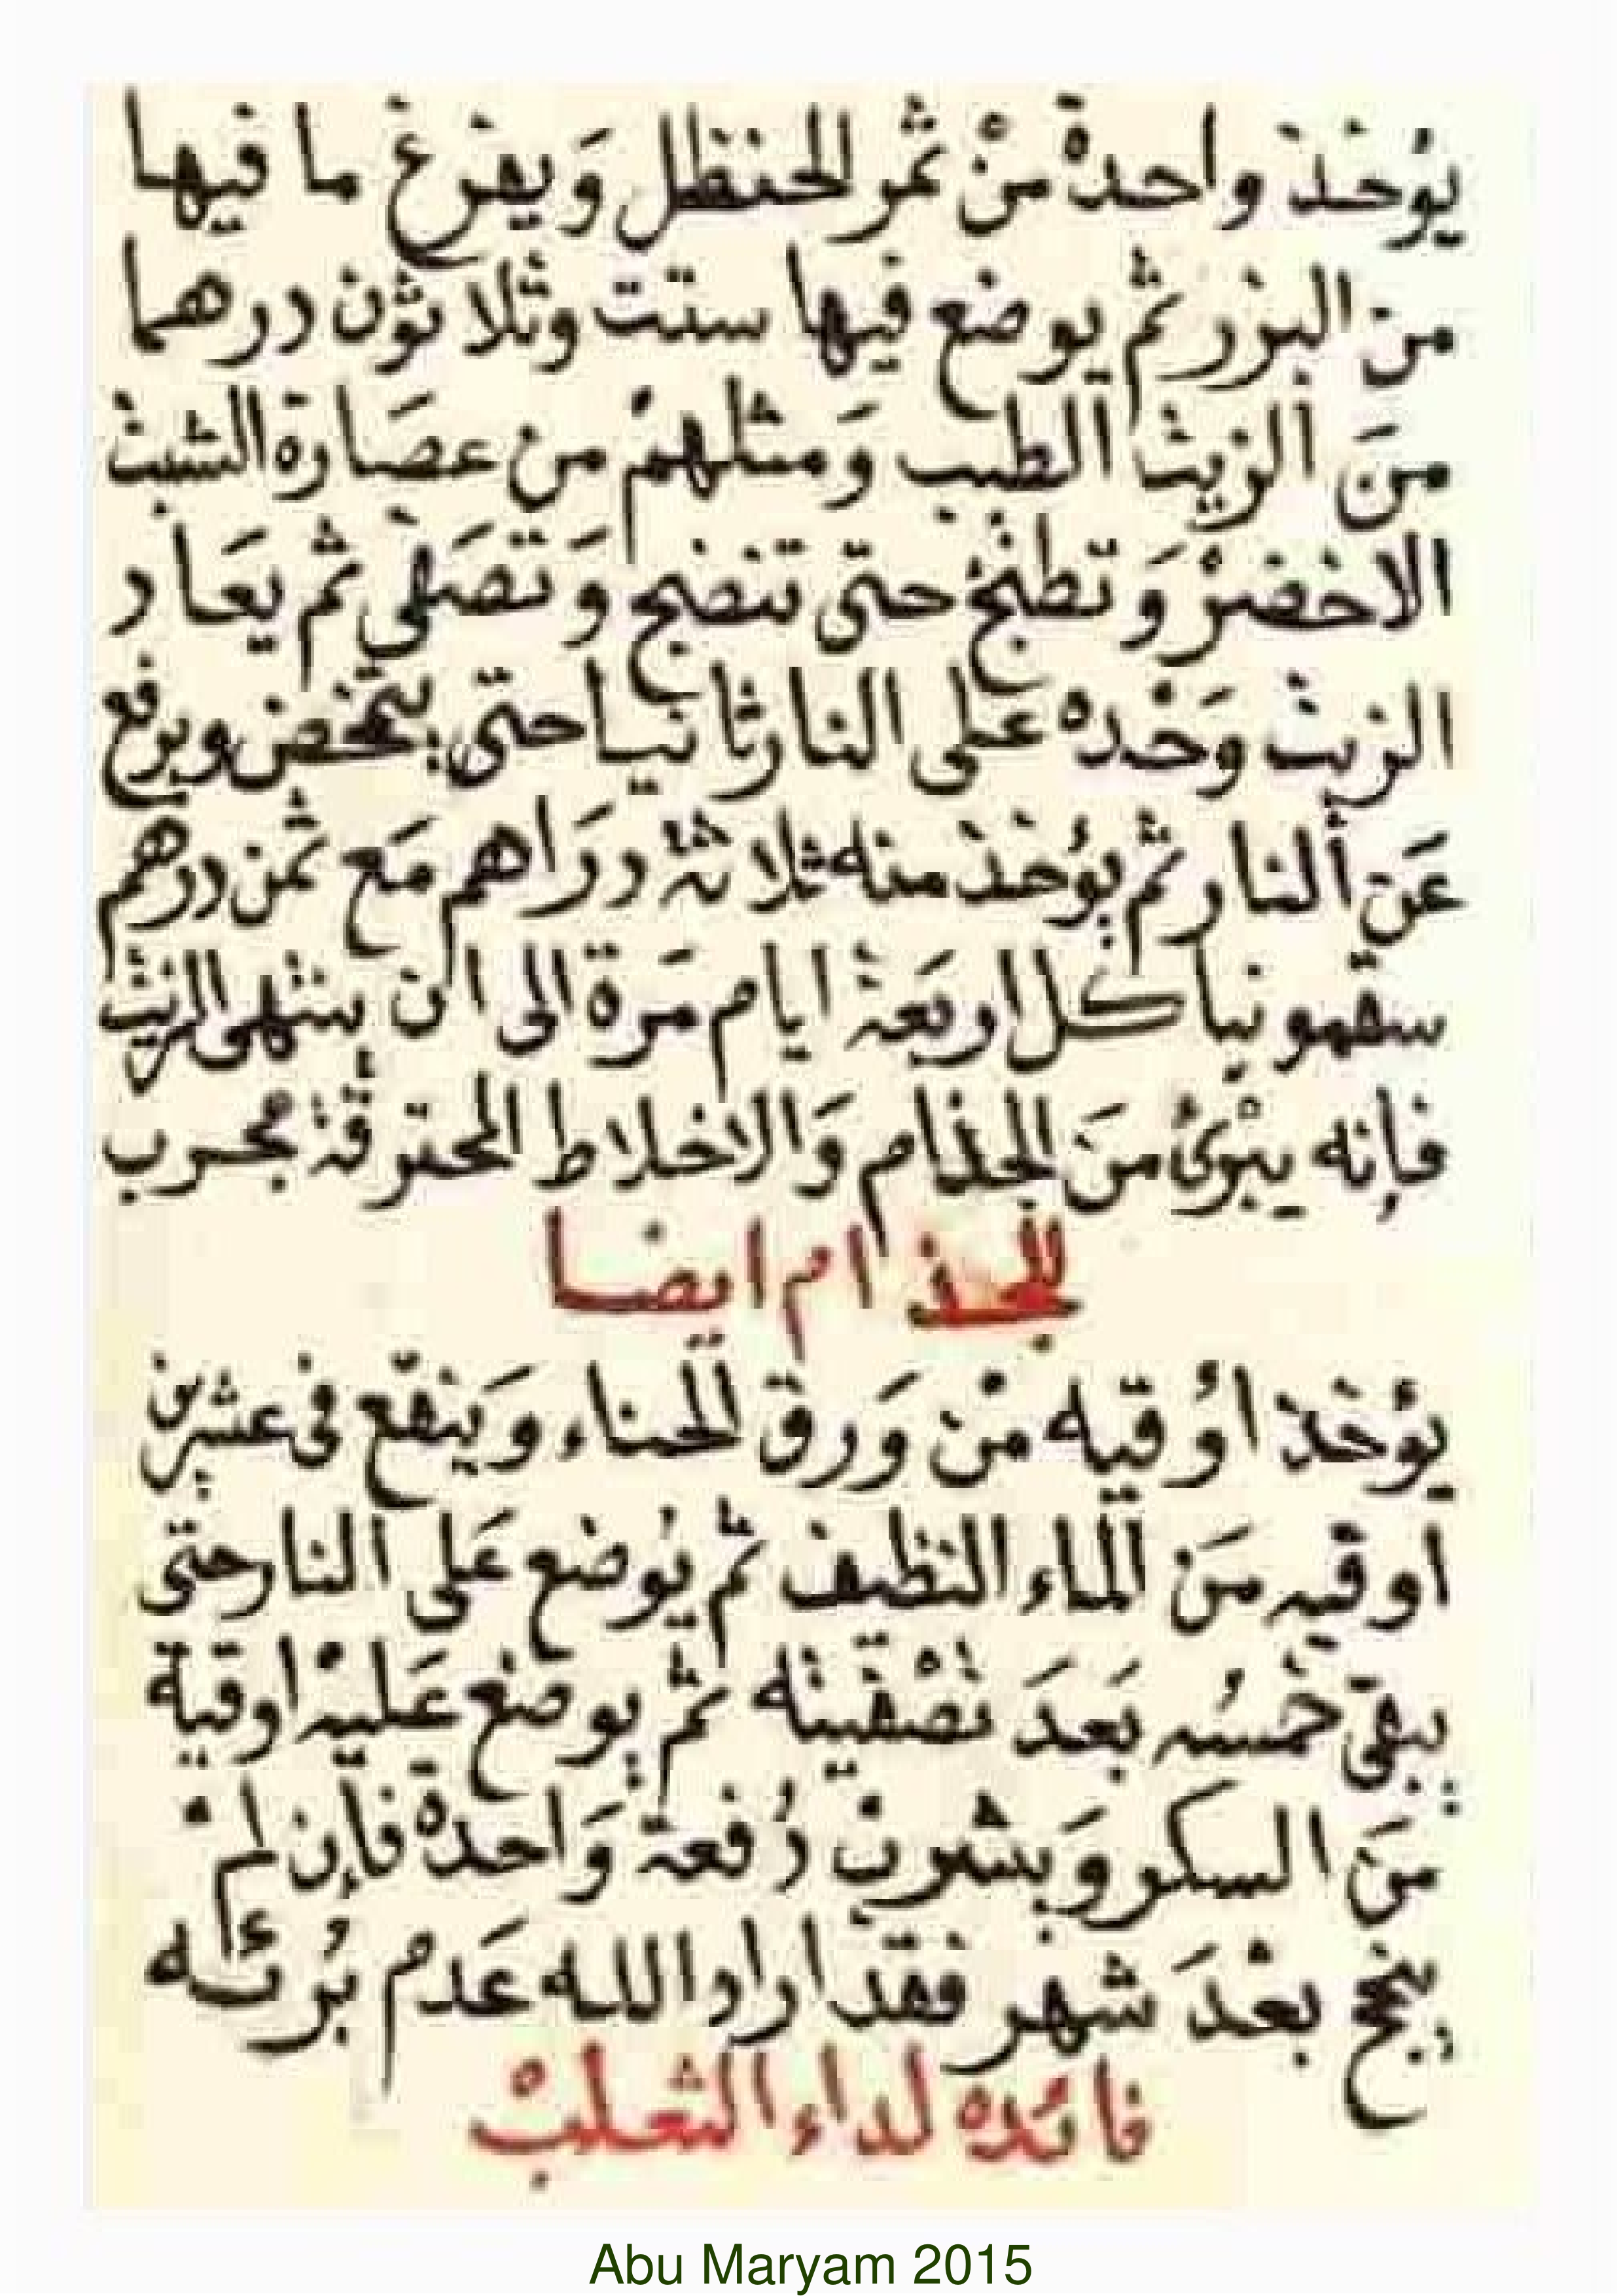 يوخذ واحدة منْ ثمر الحنظل وَيفرغ ما فيها
من البزر ثم يوضع فيها ستت وثلاثون درهما
منَ الزيت الطيب وَمثلهم من عصَارة الشبث
الاخضرْ وَتطبخ حتى تنضج وَتصَفى ثم يعَاد
الزيت وَحْده عَلى النار ثانيا حتى يتمخض ويرفع
عَن النار ثم يُوخذ منه ثلاثة درَاهم مَع ثمن درهم
سقمونيا كل اربَعة ايام مَرة الى ان ينتهى الزيت
فإنه يبْرئ منَ الجذام وَالاخلاط المحترقة مجرب
للجذام ايضا
يؤخَذ اوُقيه منْ وَرق الحناء وَينقّع فى عشرين
اوقيه منَ الماء النظيف ثم يُوضع عَلى النار حتى
يبقى خمسُه بَعدَ تصْفيته ثم يوضع عَليْه اوقية
منَ السكر وَيشرب دُفعة وَاحدة فإن لمْ
ينجح بعْدَ شهر فقد اراد الله عَدم بُرئه
فائده لداء الثعلبْ
Abu Maryam 2015